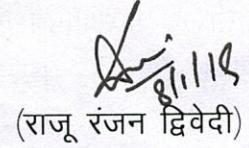 8/1/18
(राजू रंजन द्विवेदी)